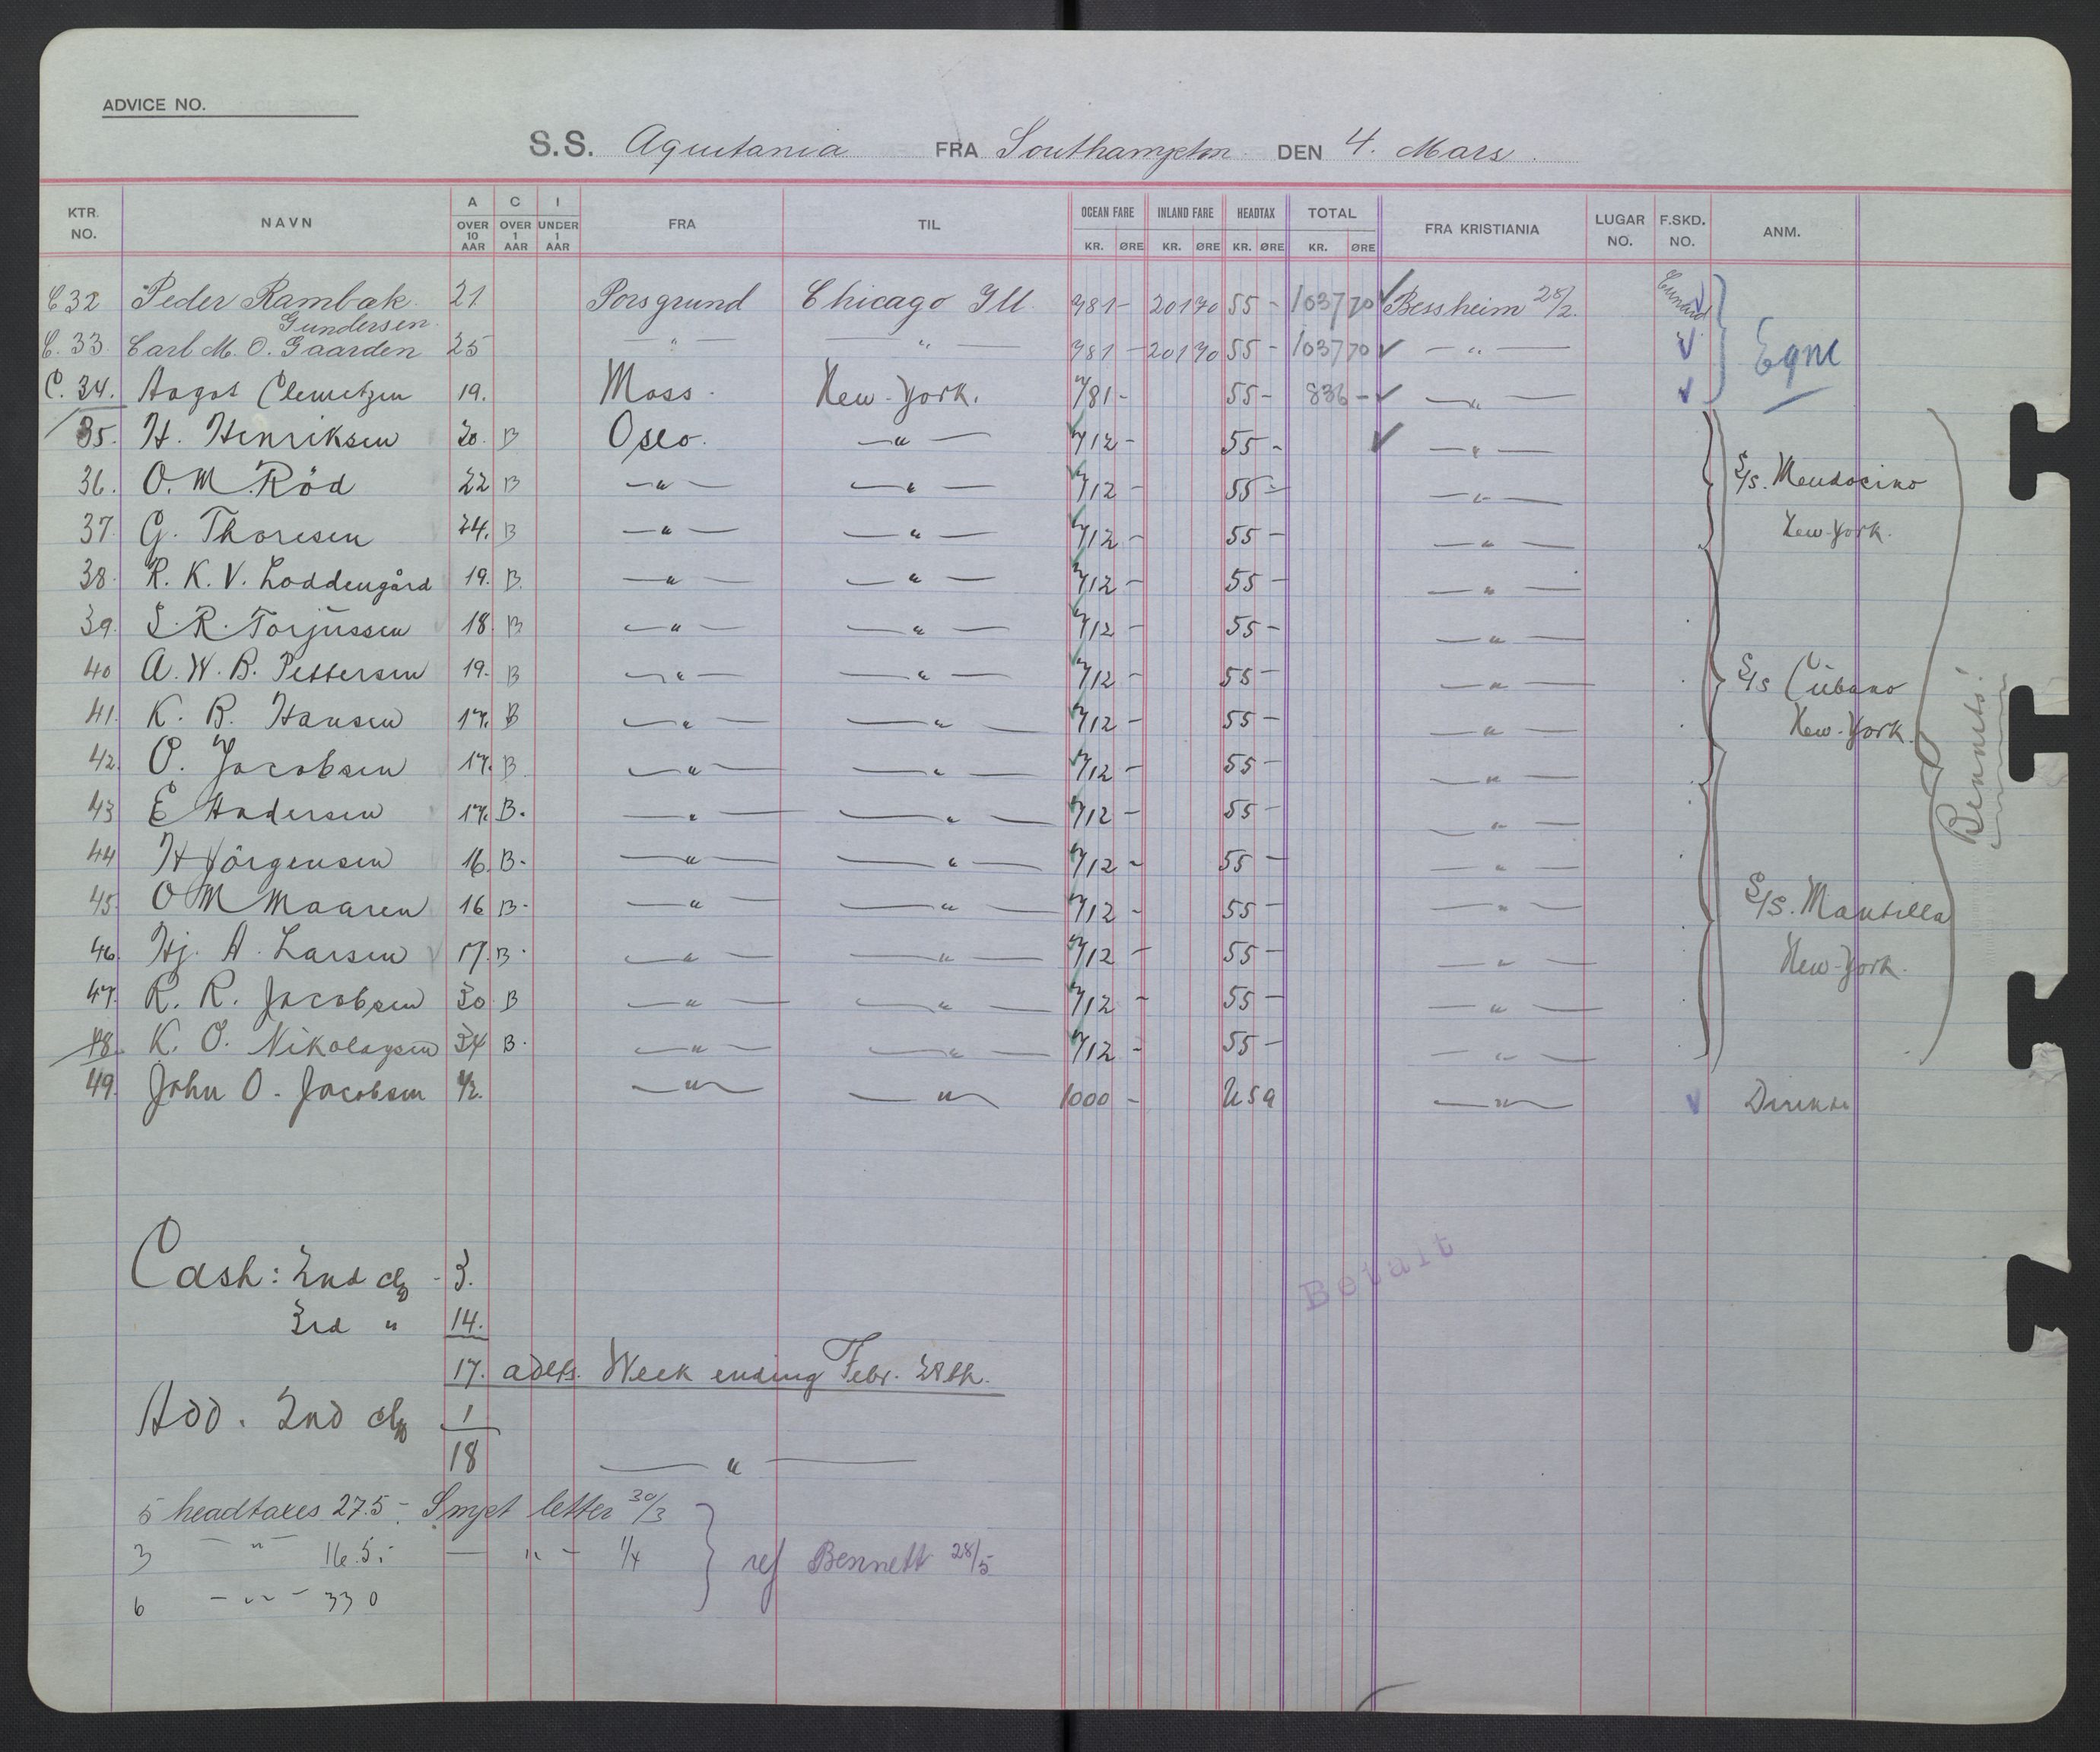 ADVICE NO.
S.S. Aquitania FRA Southampton DEN 4. Mars.
KTR. NO. NAVN A OVER 10 AAR C OVER 1 AAR I UNDER 1 AAR FRA TIL OCEAN FARE KR. ØRE INLAND FARE KR. ØRE HEADTAX KR. ØRE TOTAL KR. ØRE FRA KRISTIANIA LUGAR NO. F.SKD. NO. ANM.
C 32 Peder Rambak 21 Porsgrund Chicago Ill. 781 - 201 70 55 - 1037 70 ✓ Bessheim 28/2. Cunard
Gundersen
C. 33 Carl M. O. Gaarden 25 — " — — " — 781 - 201 70 55 - 1037 70 ✓ — " — ✓ Egne
C. 34. Aagot Clemetzen 19. Moss. New-York. 781 - 55 - 836 - ✓ — " — ✓
35. H. Henriksen 20. B Oslo. — " — 712 - 55 - ✓ — " —
36. O. M. Röd 22 B — " — — " — 712 - 55 - — " — S/S. Mendocino
37. G. Thoresen 24. B — " — — " — 712 - 55 - — " — New-York.
38. R. K. V. Loddengård 19. B. — " — — " — 712 - 55 - — " —
39. S. R. Torjussen 18. B — " — — " — 712 - 55 - — " —
40 A. W. B. Pettersen 19. B — " — — " — 712 - 55 - — " — S/S Cubano
41. K. B. Hansen 17. B — " — — " — 712 - 55 - — " — New-York.
42. O. Jacobsen 17. B — " — — " — 712 - 55 - — " —
43 E Andersen 17. B. — " — — " — 712 - 55 - — " —
44 H Jörgensen 16. B. — " — — " — 712 - 55 - — " —
45. O M Maaren 16 B. — " — — " — 712 - 55 - — " — S/S. Mantilla
46. Hj. A. Larsen 17. B. — " — — " — 712 - 55 - — " — New-York.
47. R. R. Jacobsen 30 B — " — — " — 712 - 55 - — " —
48. K. O. Nikolaysen 34 B. — " — — " — 712 - 55 - — " —
Bennets!
49. John O. Jacobsen 42. — " — — " — 1000 - USA — " — ✓ Direkte
Cash: 2nd cls - 3.
3rd " 14.
Betalt
17. adlts. Week ending Febr. 28th.
Add. 2nd cls 1
18 — " —
5 headtaxes 275.- Smpt letter 30/3
3 — " — 165.- — " — 1/4 ref Bennett 28/5
6 — " — 330